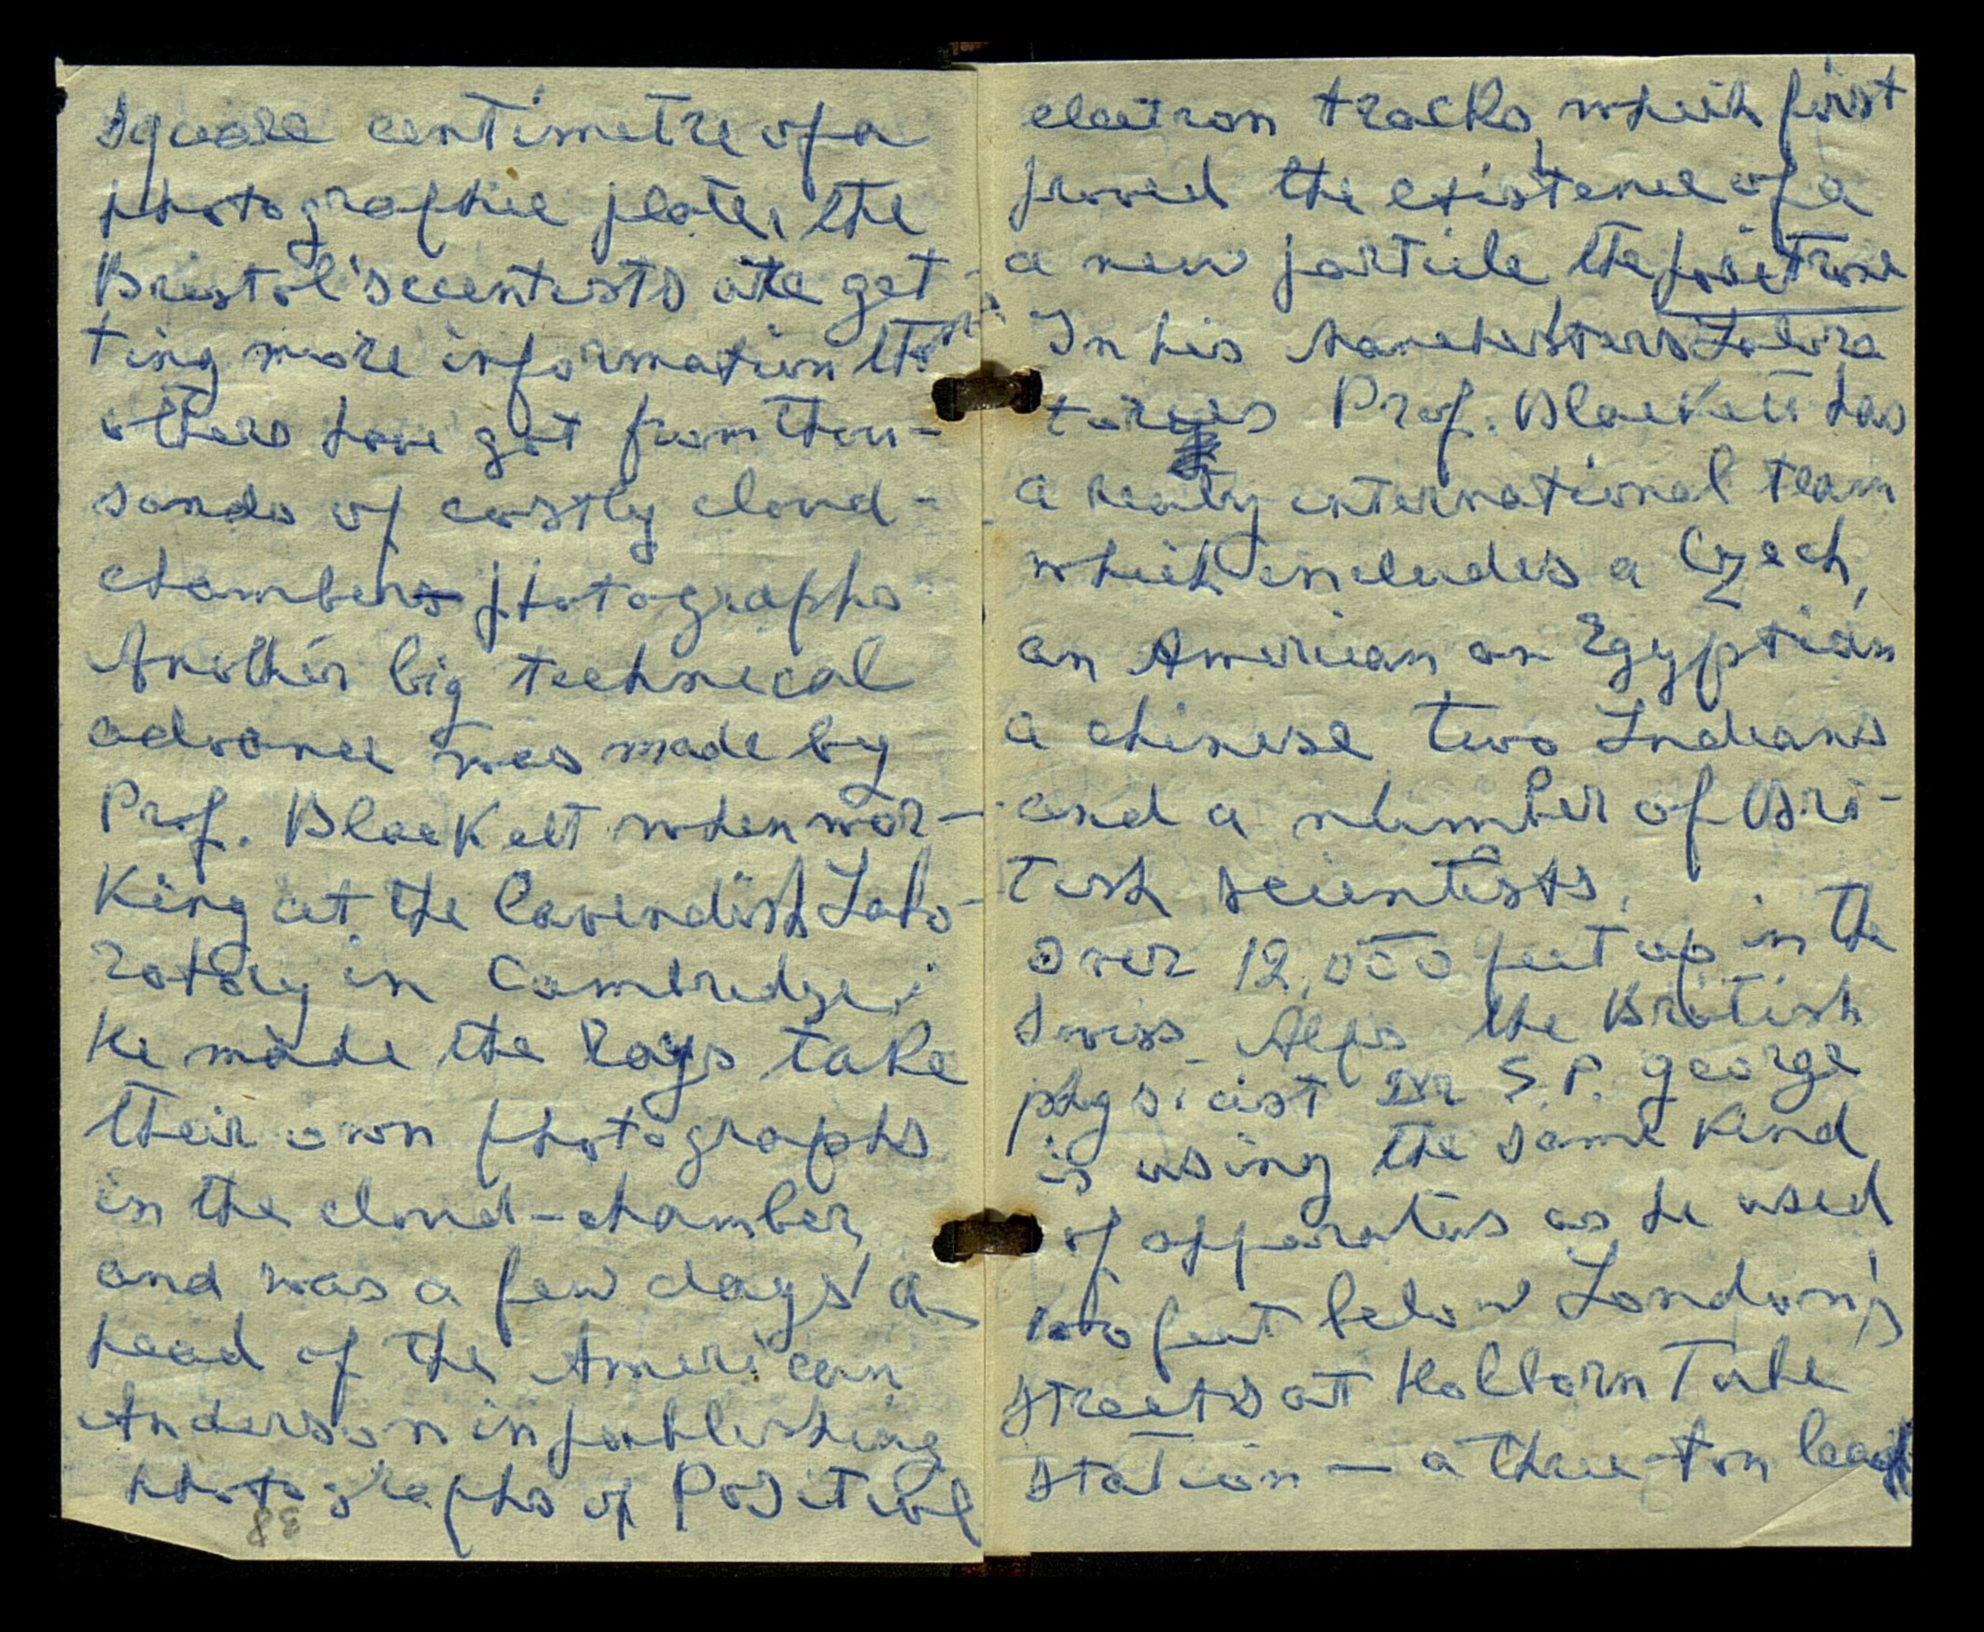 square centimetre of a
photographic plate, the
Bristol scientists are get-
ting more information than
others have got from thou-
sands of costly cloud-
chamber photographs
Another big technical
advance was made by
Prof. Blackett when wor-
king at the Cavendish Labo-
ratory in Cambridge.
He made the rays take
their own photographs
in the cloud-chamber,
and was a few days' a-
head of the American
Anderson in publishing
photographs of Positive
38
electron tracks, which first
proved the existence of a
a new particle the positron
In his Manchesters Labora
tories Prof. Blackett has
a really international team
which includes a Czech,
an American an Egyptian
a chinese two Indians
and a number of Bri-
tish scientists.
Over 12,000 feet up in the
Swiss Alps the British
physicist Dr S.P. george
is using the same kind
of apparatus as he used
100 feet below London's
streets at Holborn Tube
station — a three-ton lead